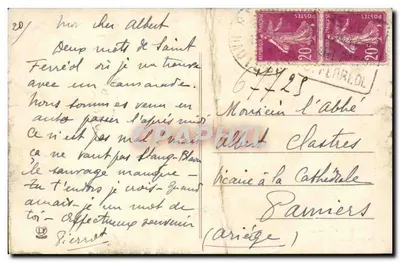 20/
Mon cher Albert
Deux mots de Saint
Ferréol où je me trouve
avec un camarade.
Nous sommes venu en
auto passer l'après midi
Ce n'est pas mal, mais
ça ne vaut pas Stang-Blavu
le sauvage manque -
tu t'endors je crois - quand
aurais-je un mot de
toi - affectueux souvenir
Pierrot
POSTES
20c
POSTES
20c
FERREOL
67725
Monsieur l'Abbé
Albert Clastres
Vicaire à la Cathédrale
Pamiers
(Ariège)